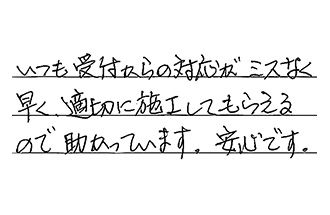 いつも受付からの対応がミスなく
早く、適切に施工してもらえる
ので助かっています。安心です。